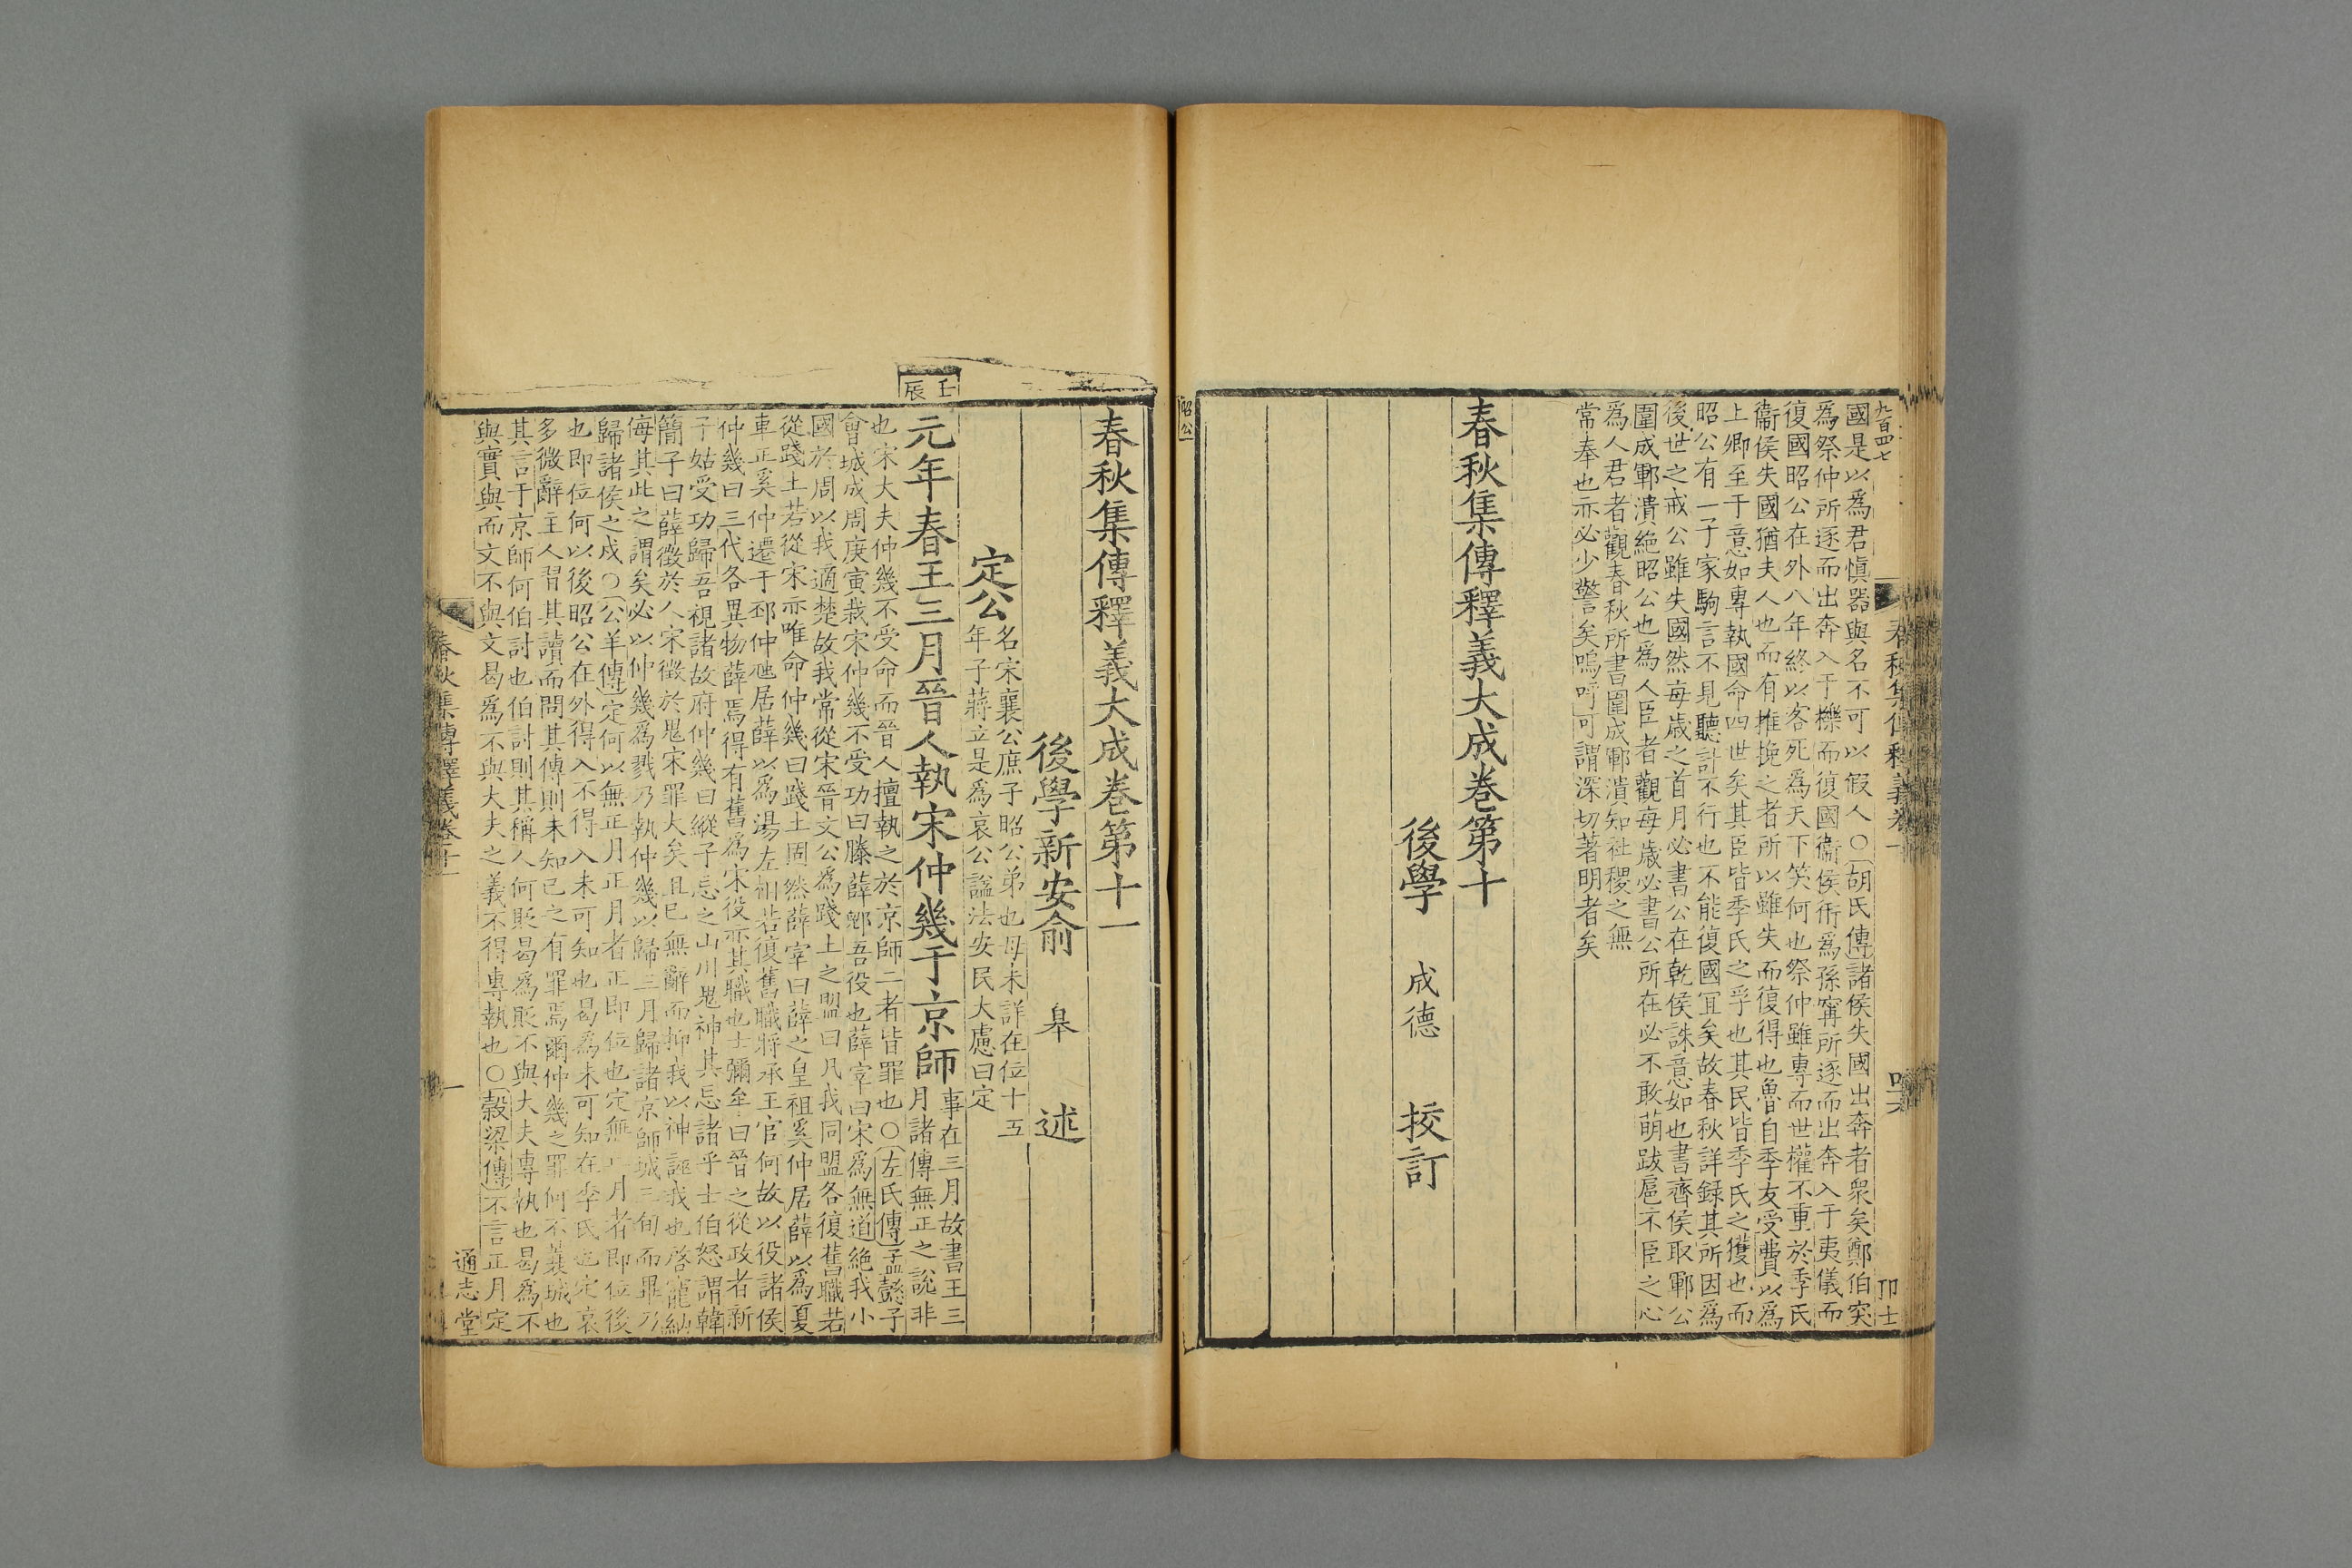 九百四七
國是以爲君愼器與名不可以假人○胡氏傳諸侯失國出奔者衆矣鄭伯突
爲祭仲所逐而出奔入于櫟而復國衞侯衎爲孫甯所逐而出奔入于夷儀而
復國昭公在外八年終以客死爲天下笑何也祭仲雖專而世權不重於季氏
衞侯失國猶夫人也而有推挽之者所以雖失而復得也魯自季友受費以爲
上卿至于意如專執國命四世矣其臣皆季氏之孚也其民皆季氏之獲也而
昭公有一子家駒言不見聽計不行也不能復國宜矣故春秋詳録其所因爲
後世之戒公雖失國然每歲之首月必書公在乾侯誅意如也書齊侯取鄆公
圍成鄆潰絶昭公也爲人臣者觀每歲必書公所在必不敢萌跋扈不臣之心
爲人君者觀春秋所書圍成鄆潰知社稷之無
常奉也亦必少警矣嗚呼可謂深切著明者矣
春秋集傳釋義大成卷第十
後學 成德 挍訂
昭公
春秋集傳釋義大成卷第十一
後學新安俞 皋 述
定公
名宋襄公庶子昭公弟也母未詳在位十五
年子蔣立是爲哀公謚法安民大慮曰定
壬辰
元年春王三月晉人執宋仲幾于京師
事在三月故書王三
月諸傳無正之說非
也宋大夫仲幾不受命而晉人擅執之於京師二者皆罪也○左氏傳孟懿子
會城成周庚寅栽宋仲幾不受功曰滕薛郳吾役也薛宰曰宋爲無道絶我小
國於周以我適楚故我常從宋晉文公爲踐土之盟曰凡我同盟各復舊職若
從踐土若從宋亦唯命仲幾曰踐土固然薛宰曰薛之皇祖奚仲居薛以爲夏
車正奚仲遷于邳仲虺居薛以爲湯左相若復舊職將承王官何故以役諸侯
仲幾曰三代各異物薛焉得有舊爲宋役亦其職也士彌牟曰晉之從政者新
子姑受功歸吾視諸故府仲幾曰縱子忘之山川鬼神其忘諸乎士伯怒謂韓
簡子曰薛徵於人宋徵於鬼宋罪大矣且已無辭而抑我以神誣我也啓寵納
侮其此之謂矣必以仲幾爲戮乃執仲幾以歸三月歸諸京師城三旬而畢乃
歸諸侯之戍○公羊傳定何以無正月正月者正即位也定無正月者即位後
也即位何以後昭公在外得入不得入未可知也曷爲未可知在季氏也定哀
多微辭主人習其讀而問其傳則未知己之有罪焉爾仲幾之罪何不蓑城也
其言于京師何伯討也伯討則其稱人何貶曷爲貶不與大夫專執也曷爲不
與實與而文不與文曷爲不與大夫之義不得專執也○穀梁傳不言正月定
春秋集傳釋義卷十一
一
通志堂